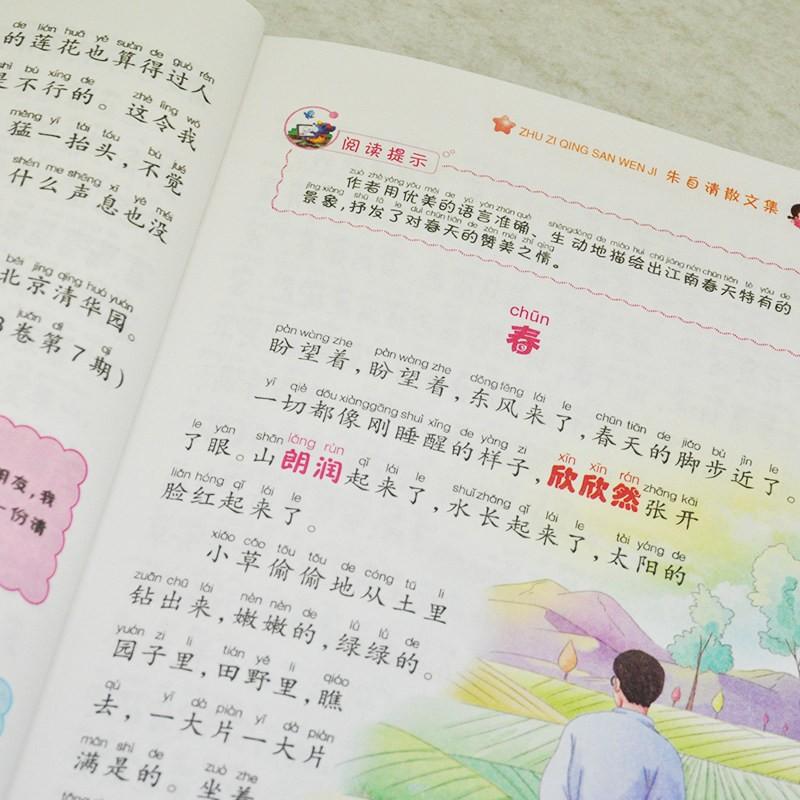 de lián huā yě suàn de guò rén
的莲花也算得过人
shì bù xíng de zhè lìng wǒ
是不行的。这令我
měng yì tái tóu bù jué
猛一抬头，不觉
shén me shēng xī yě méi
什么声息也没
běi jīng qīng huá yuán
北京清华园。
juàn dì qī
卷第7期）
朋友，我
一份请
ZHU ZI QING SAN WEN JI 朱自清散文集
阅读提示
zuò zhě yòng yōu měi de yǔ yán zhǔn què shēng dòng de miáo huì chū jiāng nán chūn tiān tè yǒu de
作者用优美的语言准确、生动地描绘出江南春天特有的
jǐng xiàng shū fā le duì chūn tiān de zàn měi zhī qíng
景象，抒发了对春天的赞美之情。
chūn
春
pàn wàng zhe pàn wàng zhe dōng fēng lái le chūn tiān de jiǎo bù jìn le
盼望着，盼望着，东风来了，春天的脚步近了。
yí qiè dōu xiàng gāng shuì xǐng de yàng zi xīn xīn rán zhāng kāi
一切都像刚睡醒的样子，欣欣然张开
le yǎn shān lǎng rùn qǐ lái le shuǐ zhǎng qǐ lái le tài yáng de
了眼。山朗润起来了，水长起来了，太阳的
liǎn hóng qǐ lái le
脸红起来了。
xiǎo cǎo tōu tōu de cóng tǔ li
小草偷偷地从土里
zuān chū lái nèn nèn de lǜ lǜ de
钻出来，嫩嫩的，绿绿的。
yuán zi li tián yě li qiáo
园子里，田野里，瞧
qù yí dà piàn yí dà piàn
去，一大片一大片
mǎn shì de zuò zhe
满是的。坐着